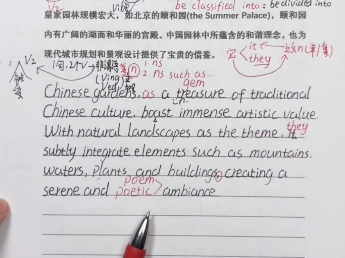 be classified into: be divided into
皇家园林规模宏大，如北京的颐和园(the Summer Palace)，颐和园
内有广阔的湖面和华丽的宫殿。中国园林中所蕴含的和谐理念，也为
现代城市规划和景观设计提供了宝贵的借鉴。
it
they
1. ns
2. ns such as...
gem
Chinese gardens, as a treasure of traditional
Chinese culture, boast immense artistic value.
they
With natural landscapes as the theme, it
subtly integrate elements such as mountains.
waters, plants and buildings, creating a
poem
serene and poetic ambiance.